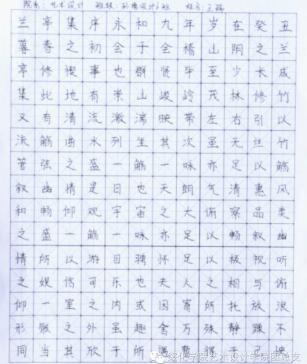 院系：艺术设计 班级：环境设计2班 姓名：王
兰亭集序永和九年岁在癸丑
暮春之初会于会稽山阴之兰
亭修禊事也群贤毕至少长咸
集此地有崇山峻岭茂林修竹
又有清流激湍映带左右引以
流觞曲水列坐其次虽无丝竹
管弦之盛一觞一咏亦足以畅
叙幽情是日也天朗气清惠风
和畅仰观宇宙之大俯察品类
之盛一觞一咏亦足以畅叙幽
情所以游目骋怀足以极视听
之娱信可乐也夫人之相与俯
仰一室之内或因寄所托放浪
形骸之外虽趣舍万殊静躁不
同当其欣于所遇暂得于己